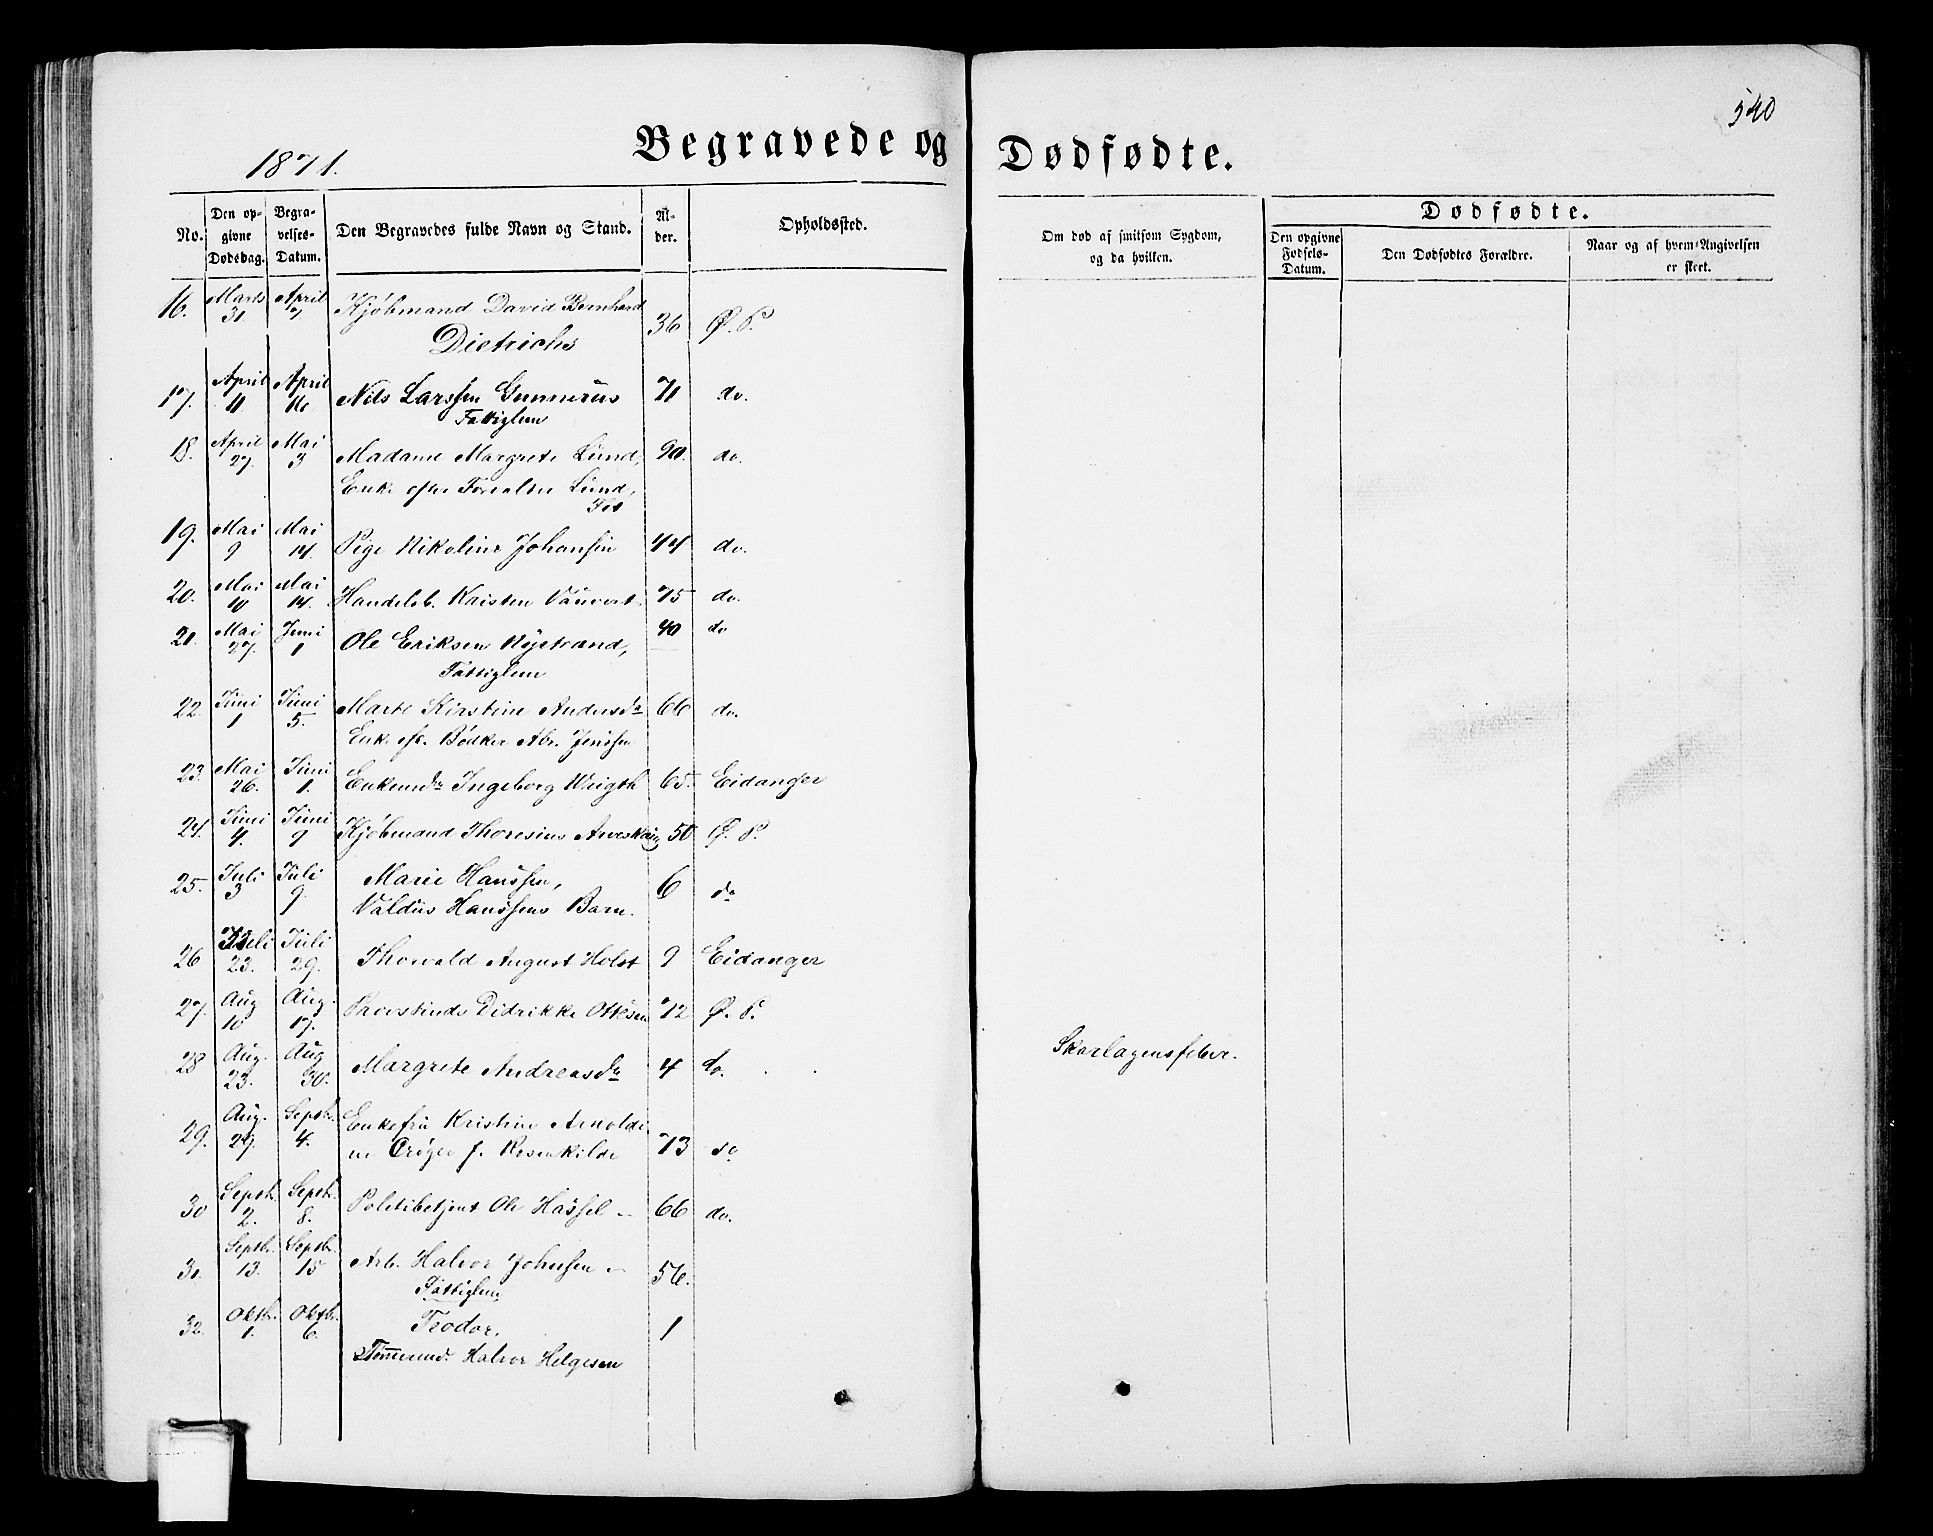 540
1871.
Begravede og Dødfødte.
No.
Den opgivne Dødsdag.
Begravelses-Datum.
Den Begravedes fulde Navn og Stand.
Alder.
Opholdssted.
Om død af smitsom Sygdom, og da hvilken.
Dødfødte.
Den opgivne Fødsels-Datum.
Den Dødfødtes Forældre.
Naar og af hvem Angivelsen er skeet.
16. Marts 31 April 7 Kjøbmand David Bernhard
Dietrichs 36 Ø. P.
17. April 11 April 16 Nils Larssen Gunnerus 71 do.
Fattiglem
18. April 27. Mai 3 Madame Margrete Lund, 90. do.
Enke efter Forvalter Lund,
Fos
19. Mai 9 Mai 14. Pige Nikoline Johansen 44 do.
20. Mai 10 Mai 14. Handelsb. Karsten Vauvert 75 do.
21. Mai 27. Juni 1 Ole Eriksen Nystrand, 40 do
Fattiglem
22. Juni 1 Juni 5. Marte Kirstine Andersdr 66 do.
Enke eft. Bødker Abr. Jenssen
23. Mai 26. Juni 1. Enkemdr Ingeborg Wrigth 65. Eidanger
24. Juni 4. Juni 9 Kjøbmand Thoresius 50 Ø. P.
25. Juli 3 Juli 9. Marie Hanssen, 6 do
Valdus Hanssens Barn.
26 Juli 23. Juli 29. Thorvald August Holst 9 Eidanger
27. Aug 10 Aug. 17. Didrikke Ottesen 72 Ø. P.
28 Aug. 23. Aug 30. Margrete Andreasdr 4 do. Skarlagensfeber.
29. Aug. 29. Septbr. 4. Enkefru Kristine Arnoldi
ne Crøger f. Rosenkilde 73 do
30 Septbr. 2. Septbr. 8. Politibetjent Ole Hassel 66 do.
31. Septbr. 13. Septbr. 15 Arb. Halvor Johnsen 56.
Fattiglem
32. Oktbr. 1. Oktbr. 6. Teodor, 1
Tømmermd. Halvor Helgesen